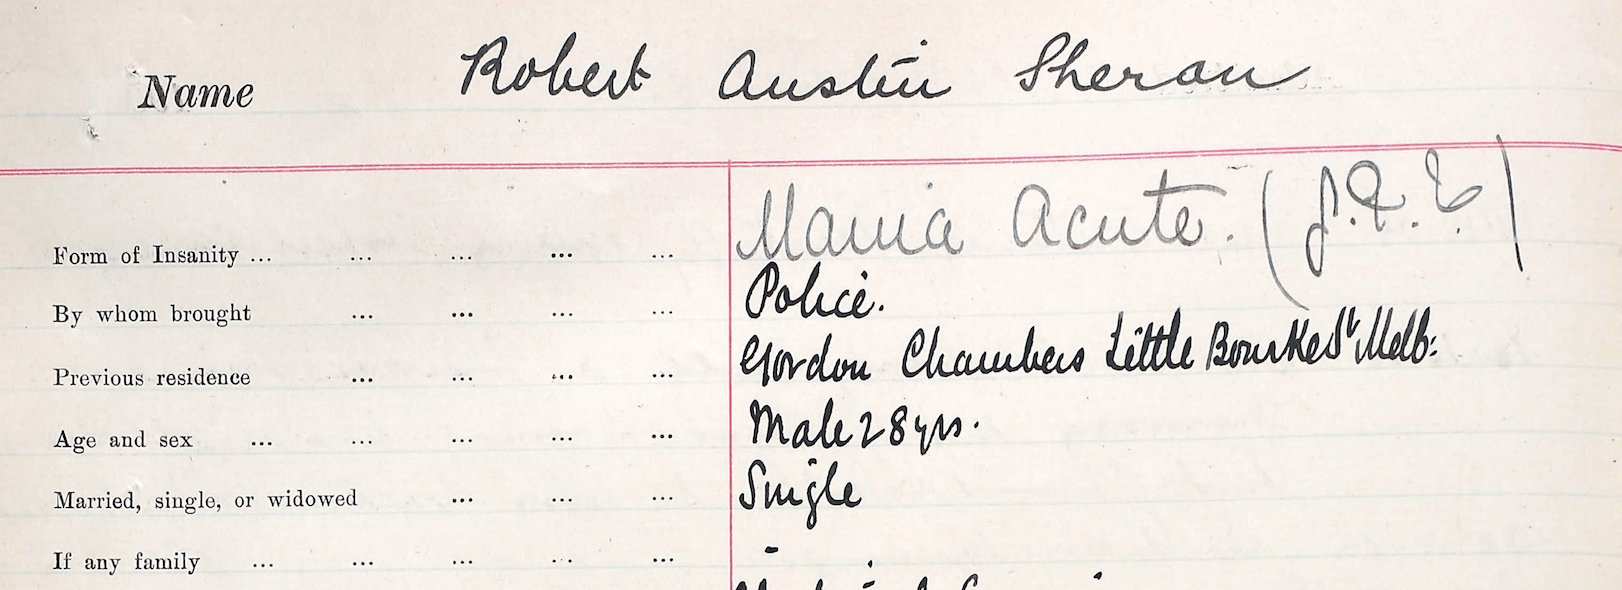 Name Robert Austin Sheran
Form of Insanity ... ... ... ... ... Mania Acute.
By whom brought ... ... ... ... Police.
Previous residence ... ... ... ... Gordon Chambers Little Bourke St Melb:
Age and sex ... ... ... ... ... Male 28 yrs.
Married, single, or widowed ... ... ... Single
If any family ... ... ... ... ... -